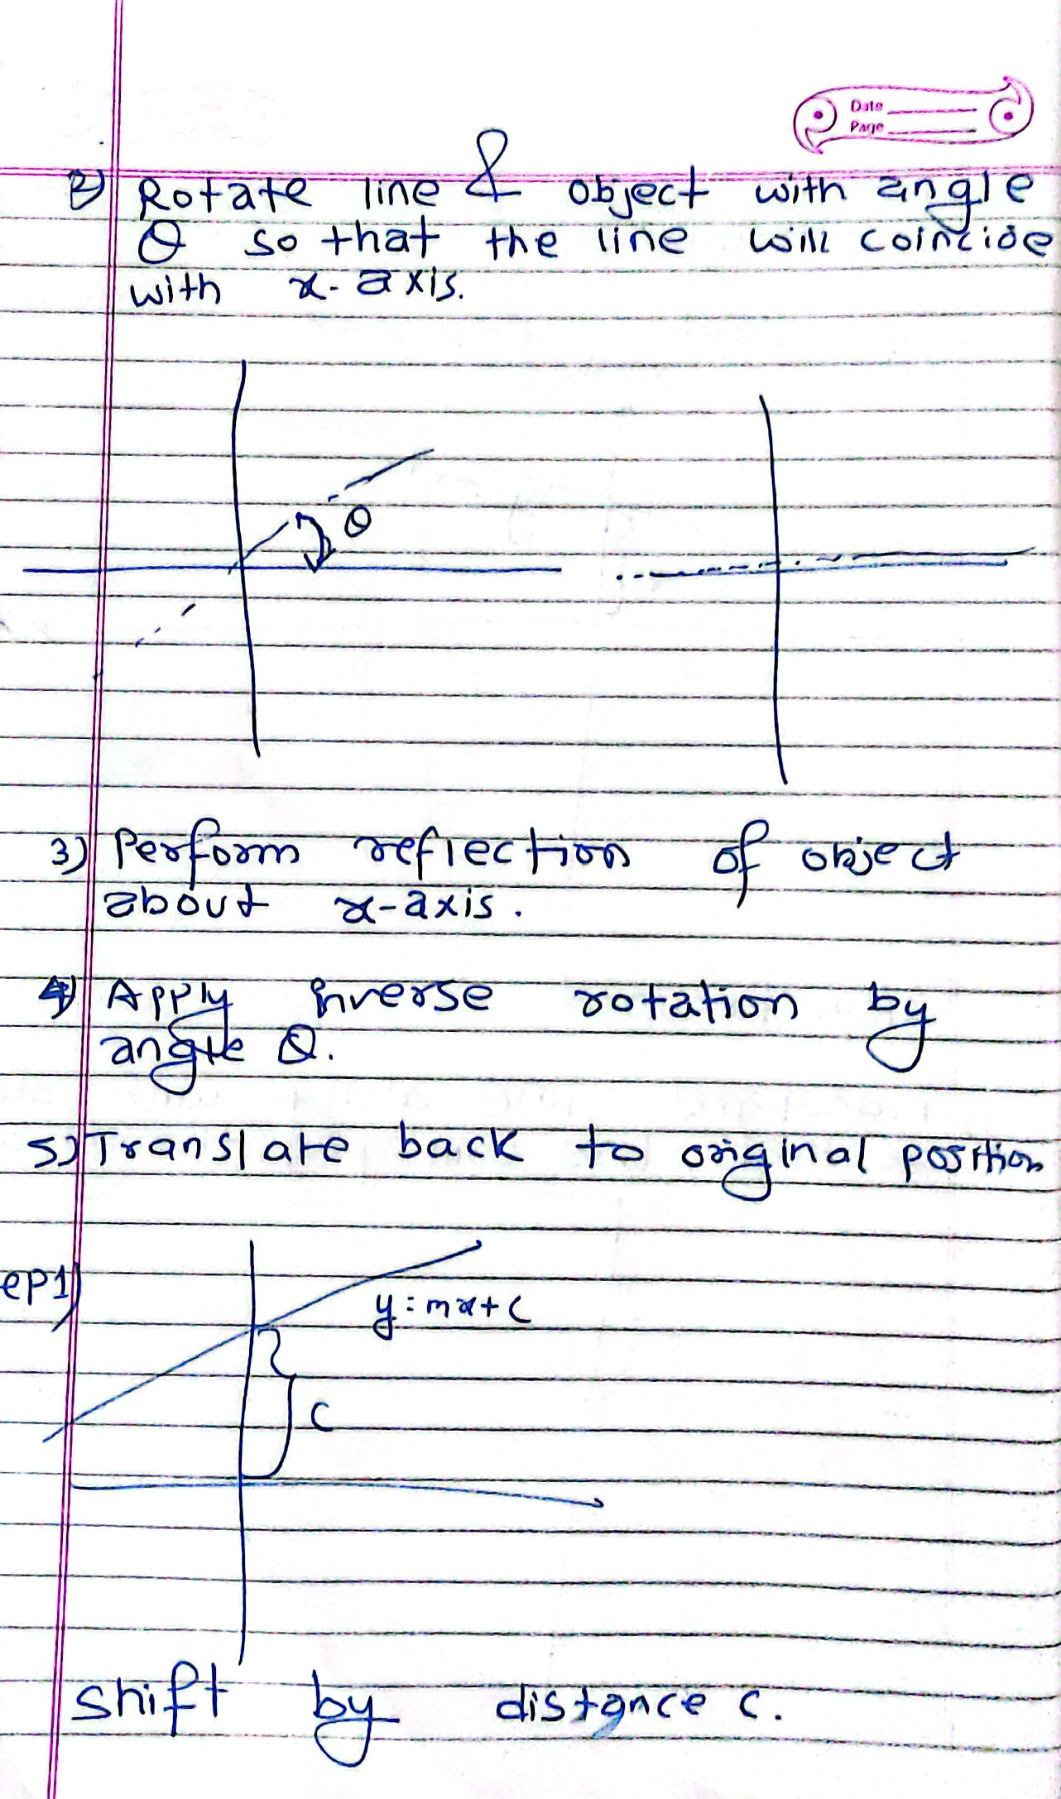 Date
Page
2) Rotate line & object with angle
θ so that the line will coincide
with x-axis.
θ
3) Perform reflection of object
about x-axis.
4) Apply inverse rotation by
angle θ.
5) Translate back to original position
ep1)
y=mx+c
c
shift by distance c.